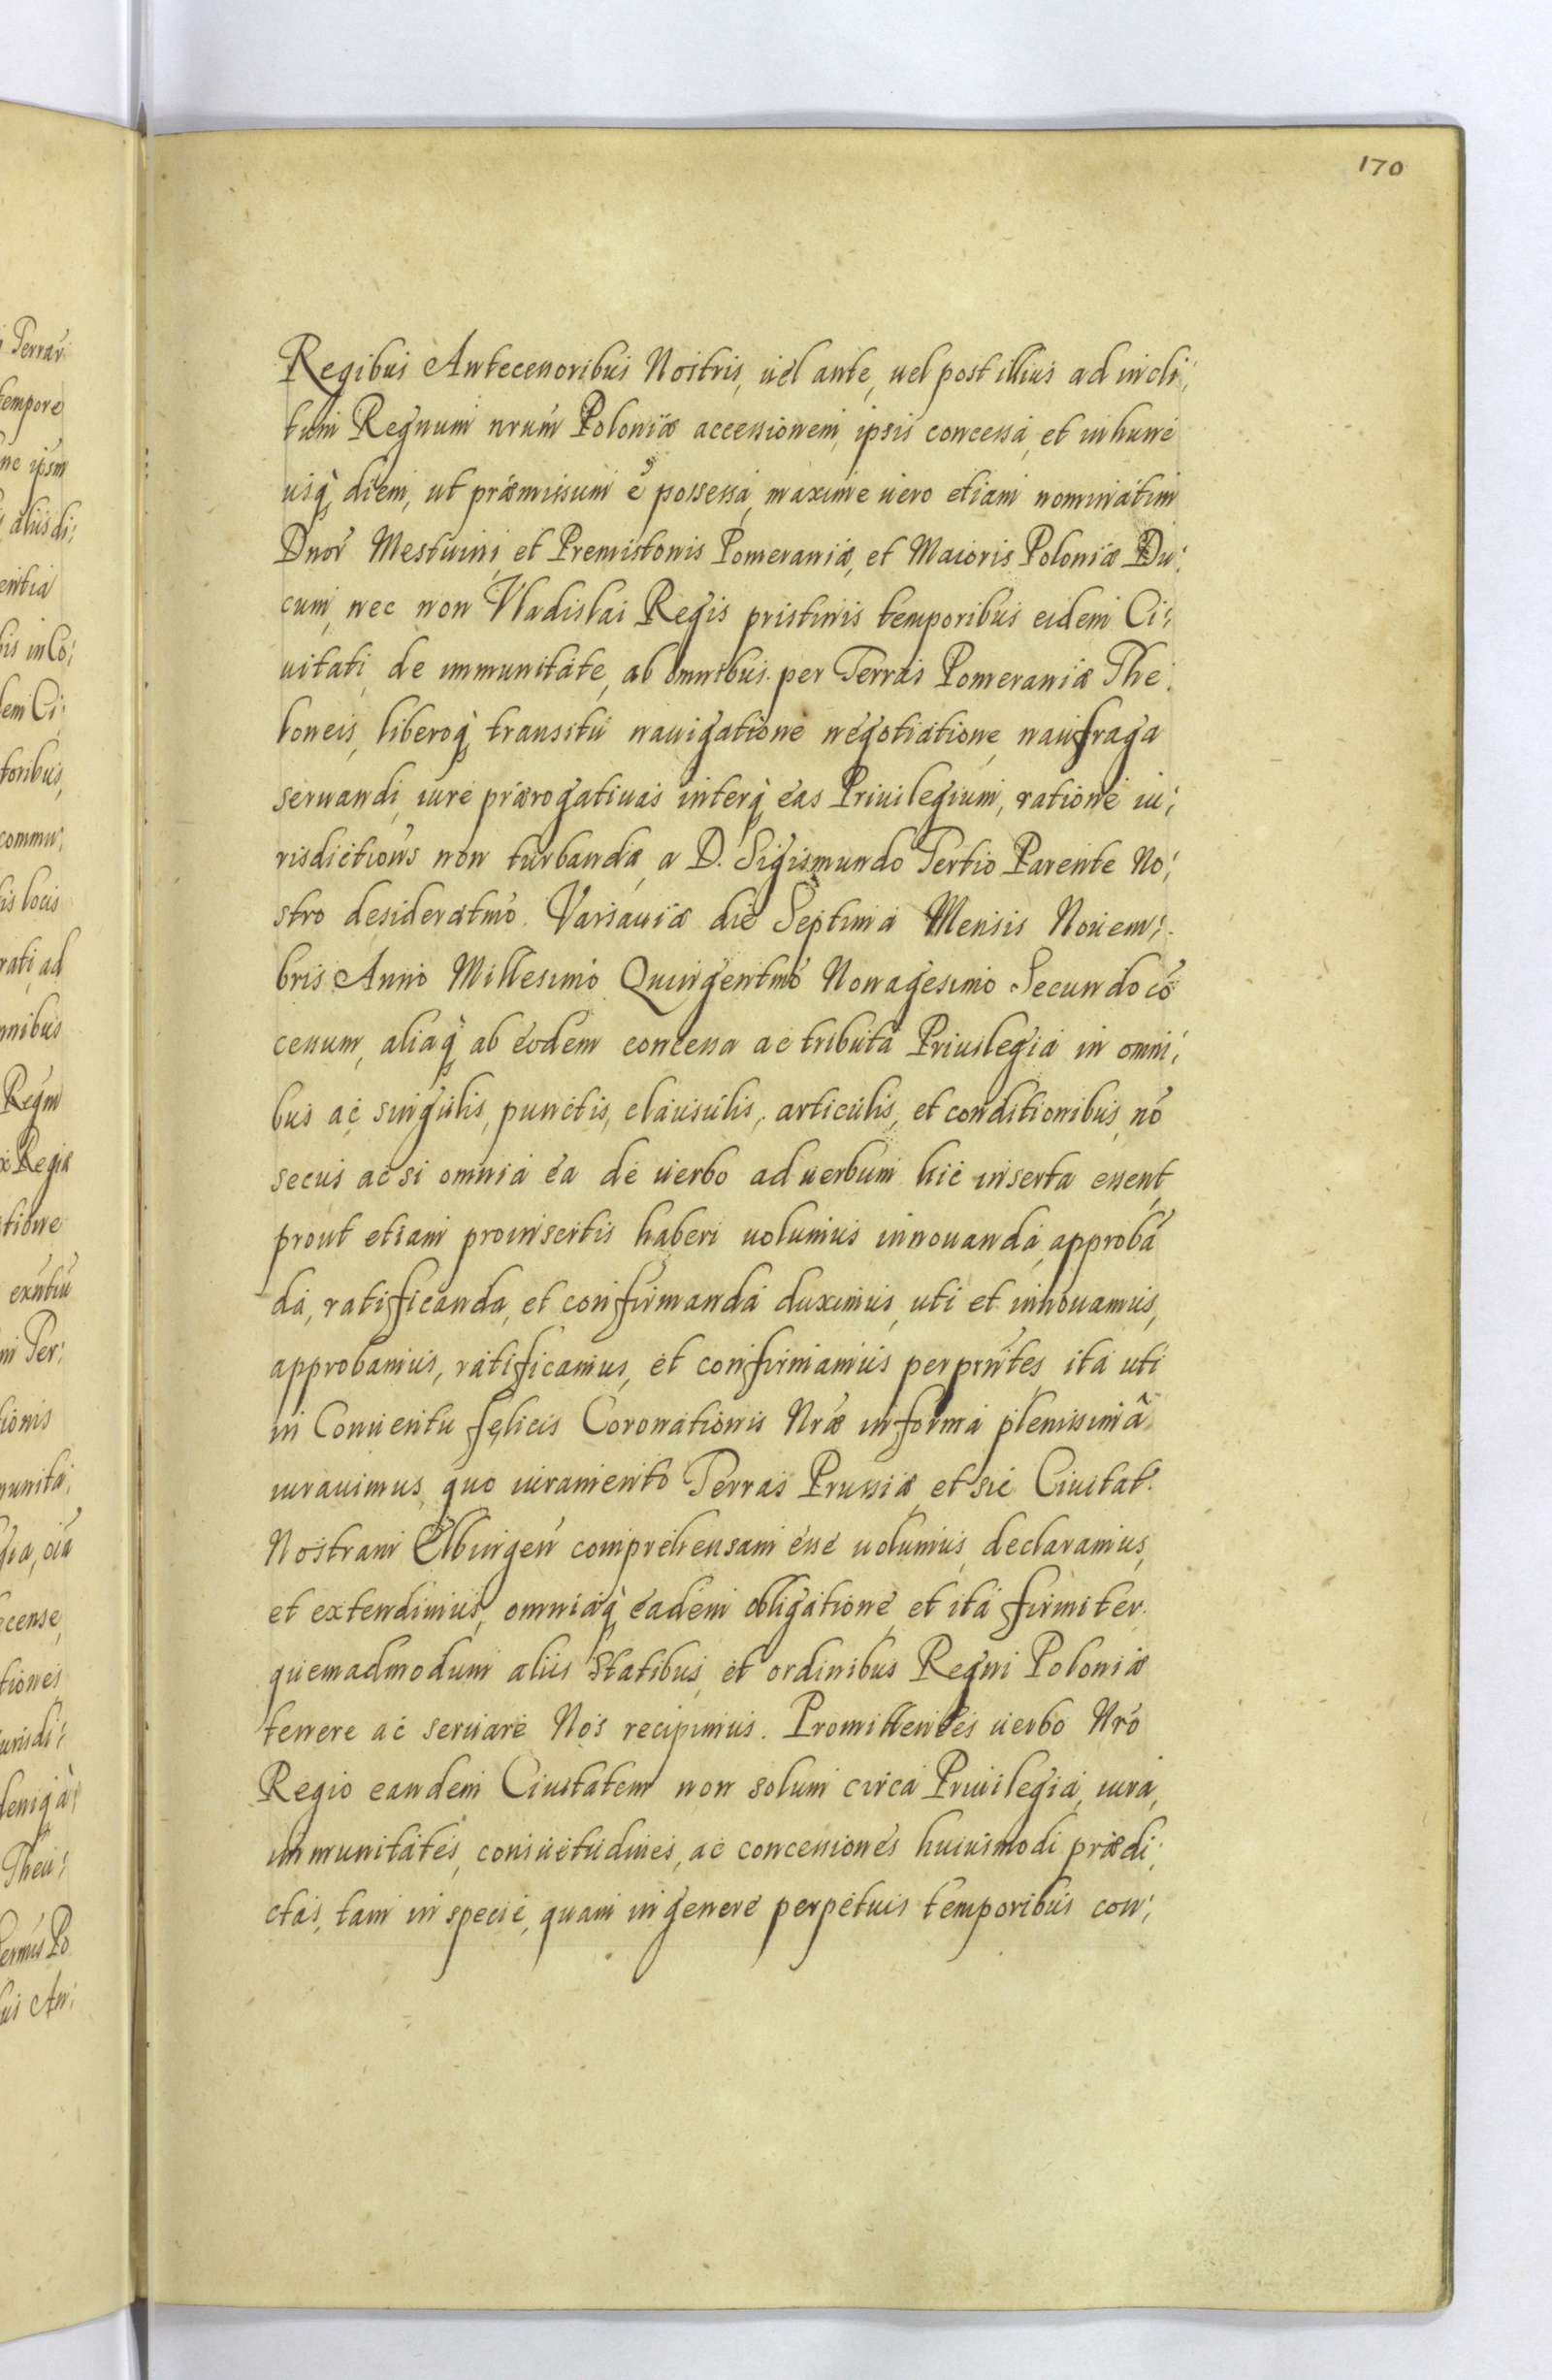 170
Regibus Antecessoribus Nostris, uel ante, uel post illius ad incli:
tum Regnum nrum Poloniæ accessionem, ipsis concessa, et in hunc
usq, diem, ut præmissum é possessa, maxime uero etiam nominatim
Dnor Mestuini, et Premistonis Pomeraniæ, et Maioris Poloniæ Du:
cum, nec non Vladislai Regis pristinis temporibus eidem Ci:
uitati, de immunitate, ab omnibus per Terras Pomeraniæ The:
loneis, liberoq, transitu nauigatione negotiatione, naufraga
seruandi, iure prærogatiuas interq, eas Priuilegium, ratione iu:
risdictions non turbandæ, a D. Sigismundo Tertio Parente No:
stro desideratmo. Varsauiæ die Septima Mensis Nouem:
bris Anno Millesimo Quingentmo Nonagesimo Secundo cõ
cessum, aliaq, ab eodem concessa ac tributa Priuilegia in omni:
bus ac singulis, punctis, clausulis, articulis, et conditionibus, nõ
secus ac si omnia ea de uerbo ad uerbum hic inserta essent,
prout etiam pro insertis haberi uolumus innouanda, approbã
da, ratificanda, et confirmanda duximus, uti et innouamus,
approbamus, ratificamus, et confirmamus per prntes, ita uti
in Conuentu felicis Coronationis Nræ in forma plenissimâ
iurauimus, quo iuramento Terras Prussiæ, et sic Ciuitat.
Nostram Elbingen comprehensam esse uolumus, declaramus,
et extendimus, omniaq, eadem obligatione, et ita firmiter.
quemadmodum aliis Statibus, et ordinibus Regni Poloniæ
tenere ac seruare Nos recipimus. Promittentes uerbo Nro
Regio eandem Ciuitatem non solum circa Priuilegia, iura,
immunitates, consuetudines, ac concessiones huiusmodi prædi:
ctas, tam in specie, quam in genere perpetuis temporibus con: